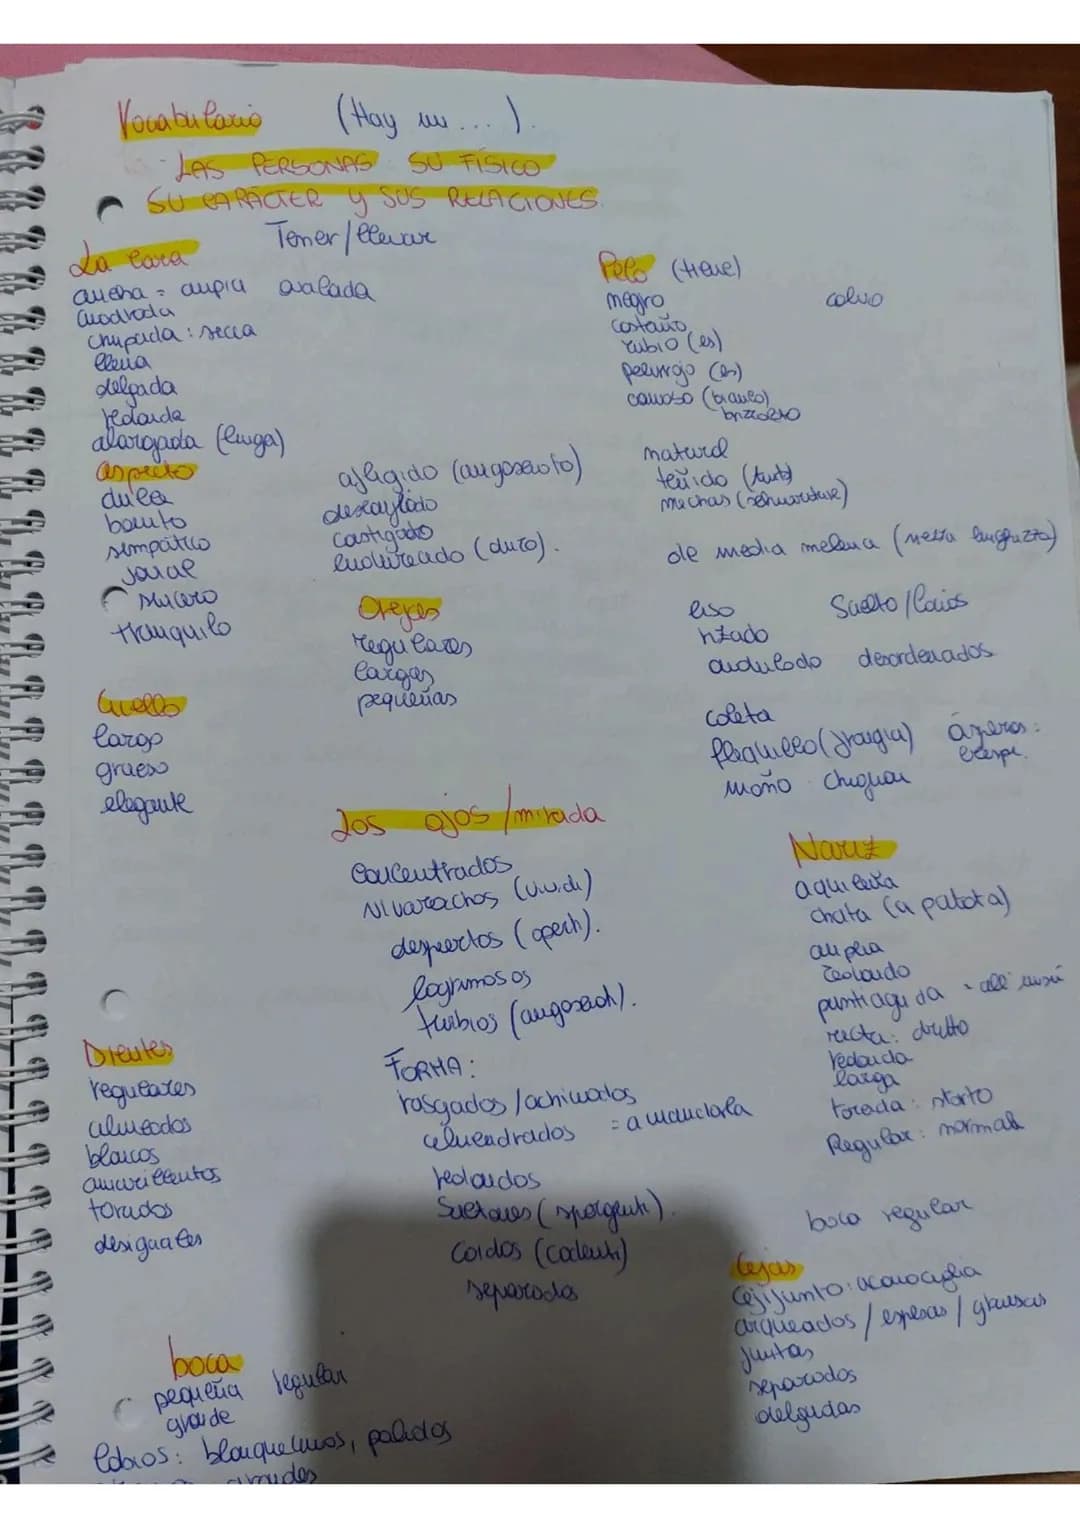 Vocabulario (Hay un ... ).
LAS PERSONAS SU FÍSICO
SU CARÁCTER y SUS RELACIONES.
Tener/llevar
La cara
ancha = ampia ovalada
cuadrada
chupada : secca
llena
delgada
redonda
alargada (lunga)
aspecto
dulce
bonito
simpático
jovial
sincero
tranquilo
afligido (angosciato)
castigado
endurecido (duro).
Orejas
regulares
largas
pequeñas
Cuello
largo
grueso
elegante
Los ojos /mirada
concentrados
vivarachos (vividi)
despiertos (aperti).
lagrimosos
turbios (angosciati).
FORMA:
rasgados /achinados
almendrados = a mandorla
redondos
Saltones (sporgenti).
caídos (cadenti)
separados
Dientes
regulares
alineados
blancos
amarillentos
torcidos
desiguales
boca
pequeña regular
grande
labios: blanquecinos, pálidos
grandes
Pelo (tiene)
negro calvo
castaño
rubio (es)
pelirrojo (es)
canoso (bianco)
brizzolato
natural
teñido (tinto)
mechas (schiariture)
de media melena (mezza lunghezza)
liso Suelto/lacios
rizado
ondulado desordenados
coleta
flequillo (frangia) ásperos:
moño chignon crespi.
Nariz
aguileña
chata (a patata)
amplia
puntiaguda = all'insù
recta: dritto
redonda
larga
torcida: storto
Regular: normale
boca regular
Cejas
Cejijunto: monociglia
arqueados / espesas / gruesas
juntas
separados
delgadas